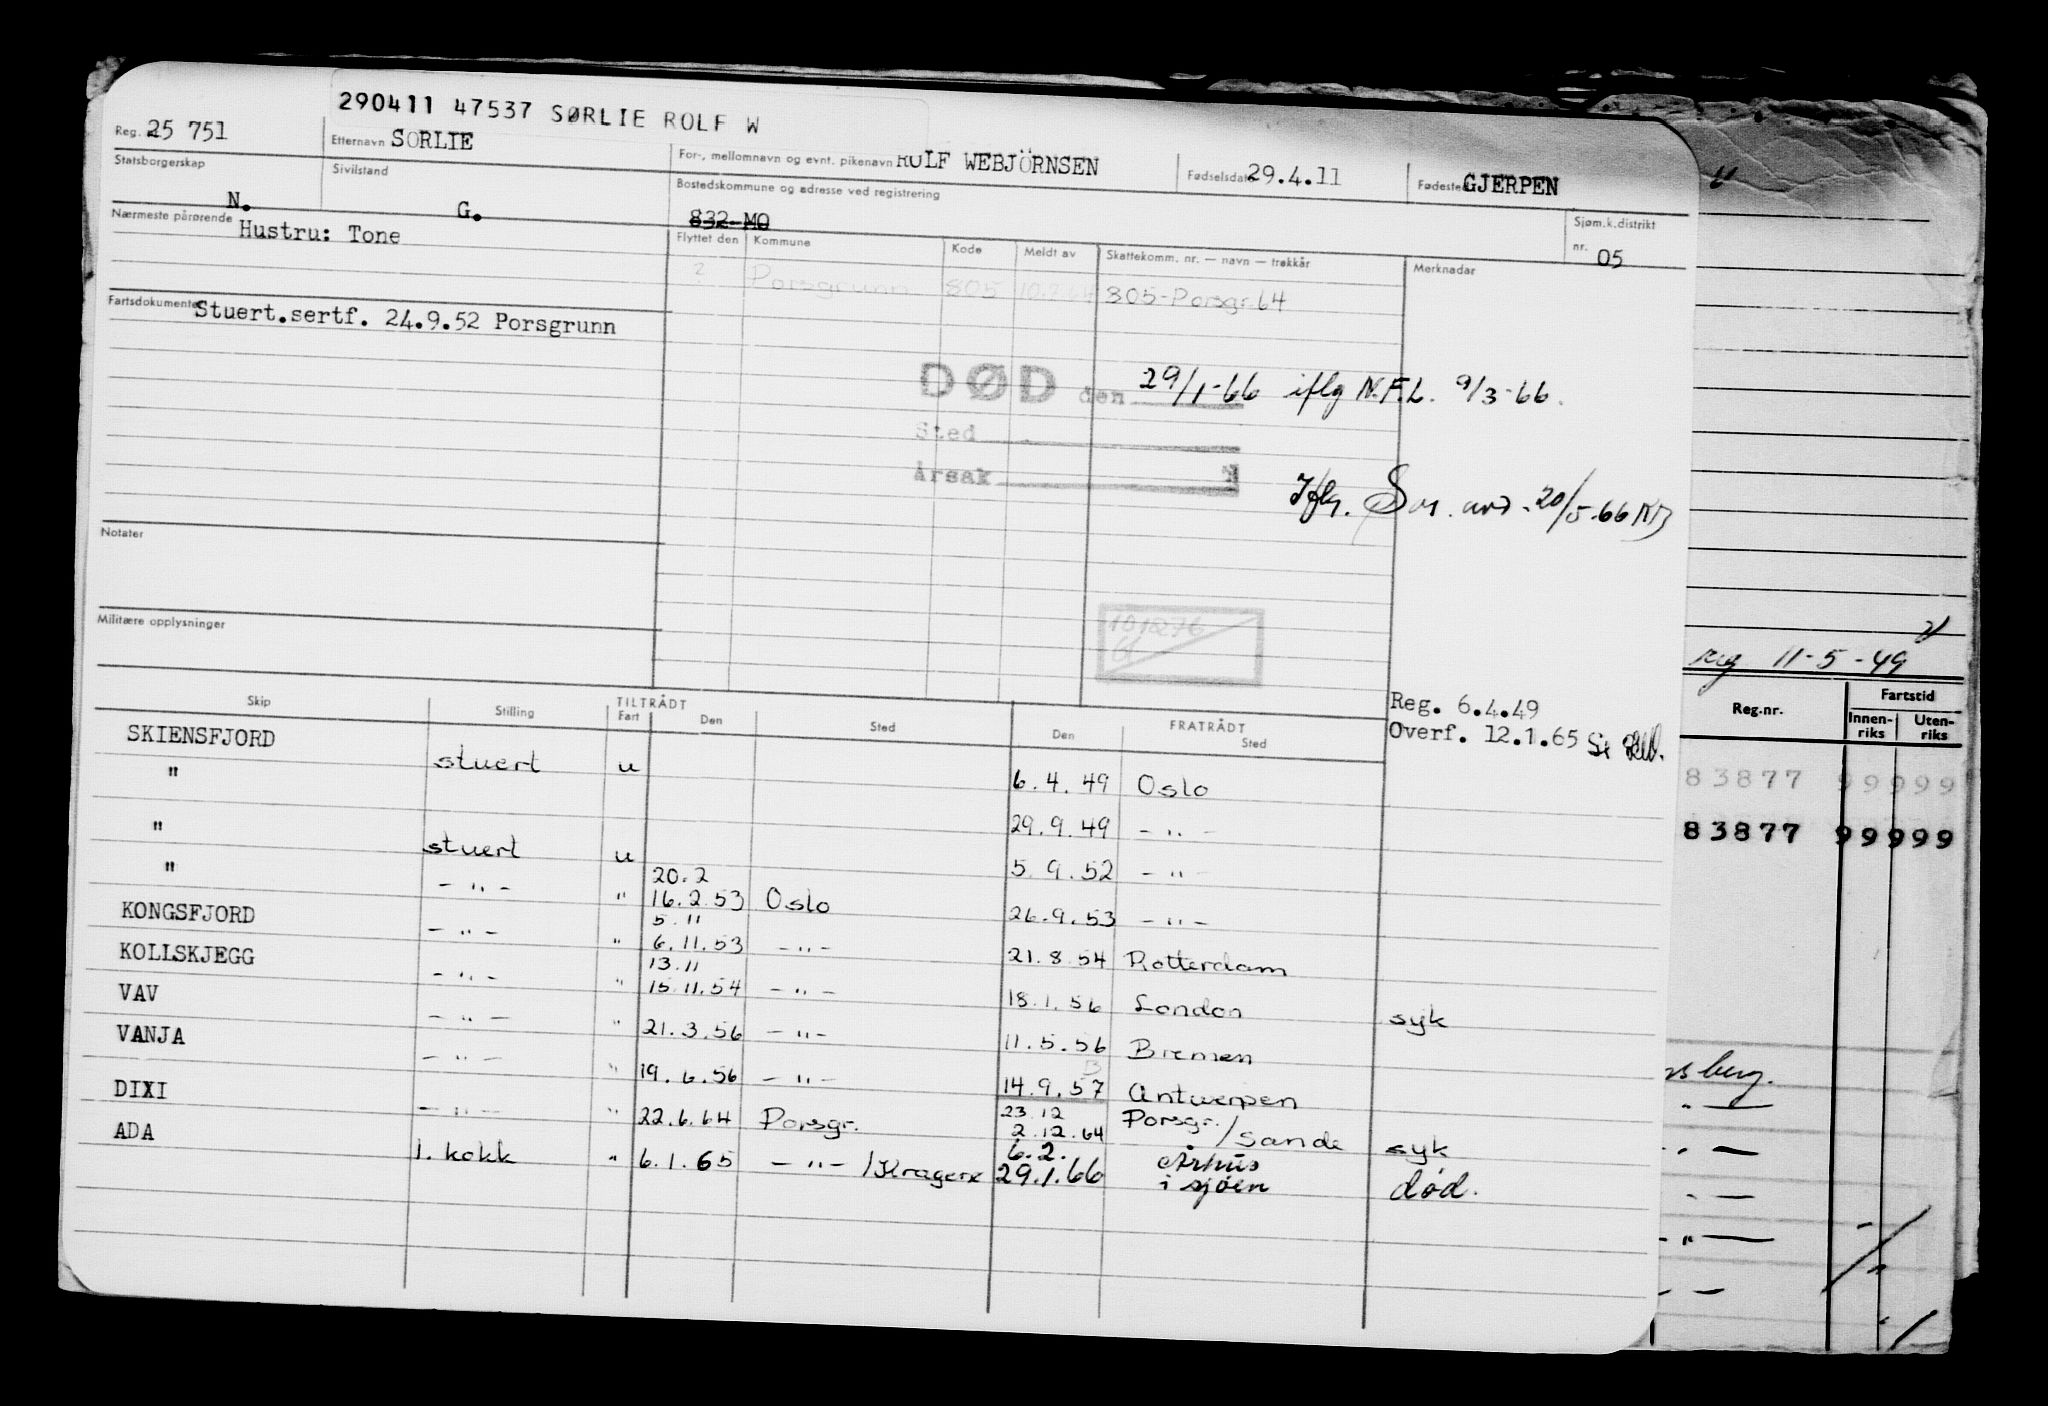 290411 47537 SØRLIE ROLF W
Reg. 25 751 Etternavn SORLIE For-, mellomnavn og evnt. pikenavn ROLF WEBJÖRNSEN Fødselsdato 29.4.11 Fødested GJERPEN
Statsborgerskap N. Sivilstand G. Bostedskommune og adresse ved registrering 832-MO Sjøm.k.distrikt nr. 05
Nærmeste pårørende Hustru: Tone
Flyttet den Kommune Kode Meldt av Skattekomm. nr. — navn — trekkår Merknader
? Porsgrunn 805 10.7.64 805-Porsgr. 64
Fartsdokumenter Stuert.sertf. 24.9.52 Porsgrunn
DØD den 29/1-66 iflg N.F.L. 9/3-66.
Sted
Årsak
Iflg. 20/5-66
Notater
101276
Militære opplysninger
Reg. 6.4.49
Overf. 12.1.65
Skip Stilling TILTRÅDT Fart Den Sted FRATRÅDT Den Sted
SKIENSFJORD stuert u 6.4.49 Oslo
" 29.9.49 - " -
" stuert u 5.9.52 - " -
" - " - " 20.2 16.2.53 Oslo 26.9.53 - " -
KONGSFJORD - " - " 5.11 6.11.53 - " - 21.8.54 Rotterdam
KOLLSKJEGG - " - " 13.11 15.11.54 - " - 18.1.56 London syk
VAV - " - " 21.3.56 - " - 11.5.56 Bremen
VANJA - " - " 19.6.56 - " - 14.9.57 Antwerpen
DIXI - " - " 22.6.64 Porsgr. 23.12 2.12.64 Porsgr. / Sande syk
ADA 1. kokk " 6.1.65 - " - / Kragerø 6.2. Århus
29.1.66 i sjøen død.
"
reg 11-5-49
Reg.nr. Fartstid
Innen-riks Uten-riks
83877 99999
83877 99999